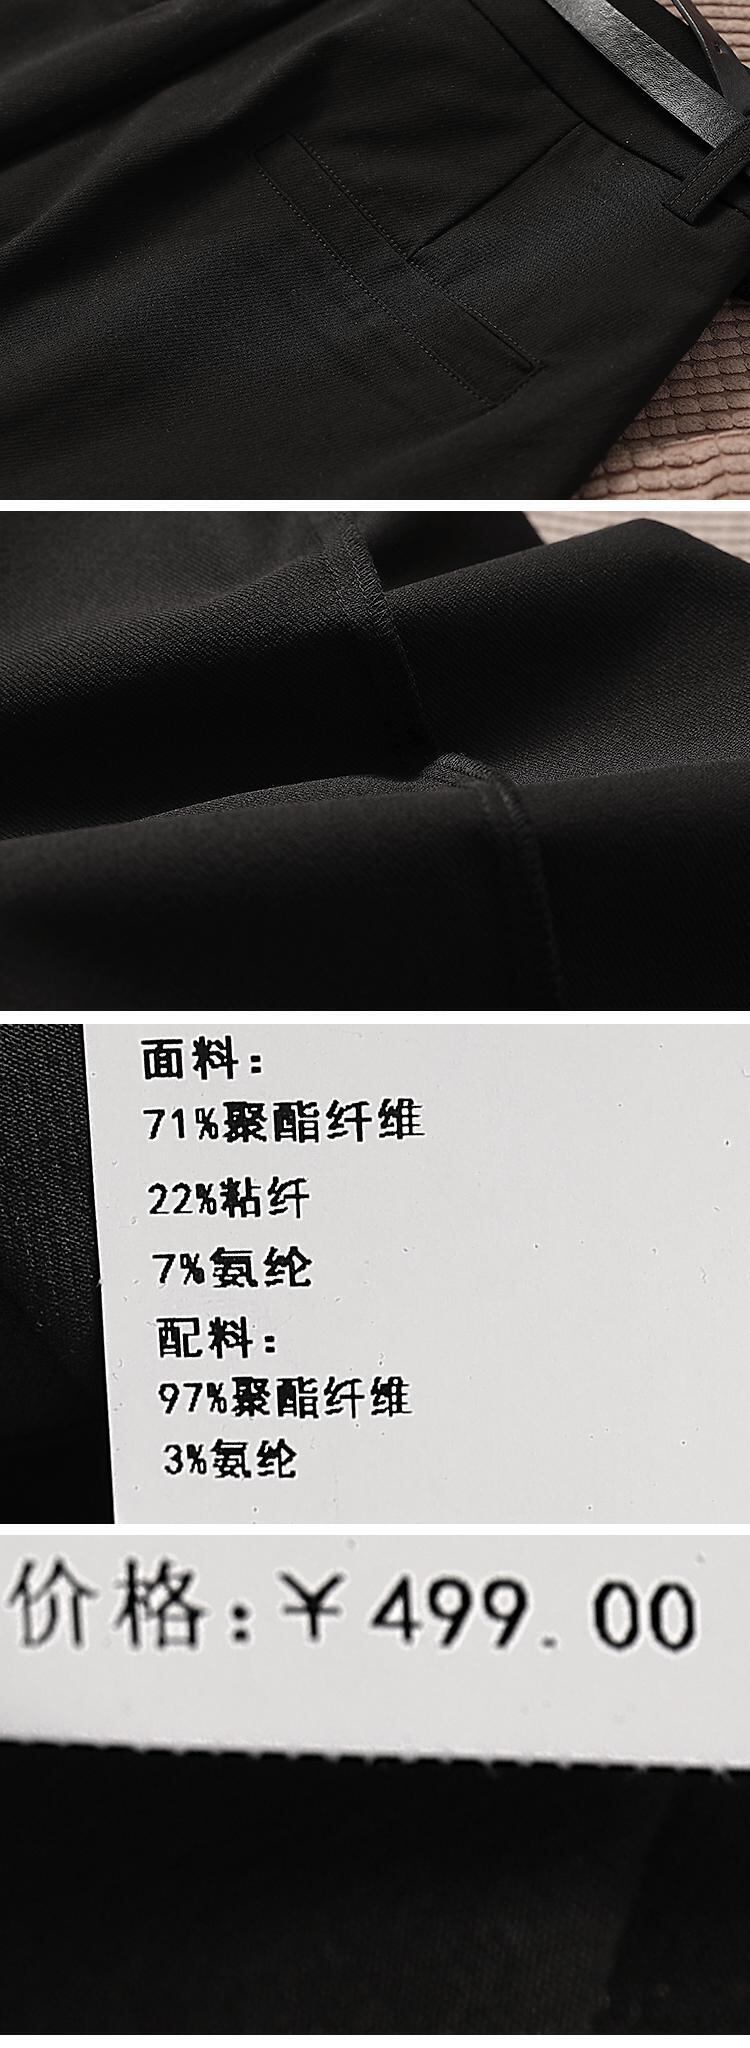 面料：
71%聚酯纤维
22%粘纤
7%氨纶
配料：
97%聚酯纤维
3%氨纶
价格：￥499.00